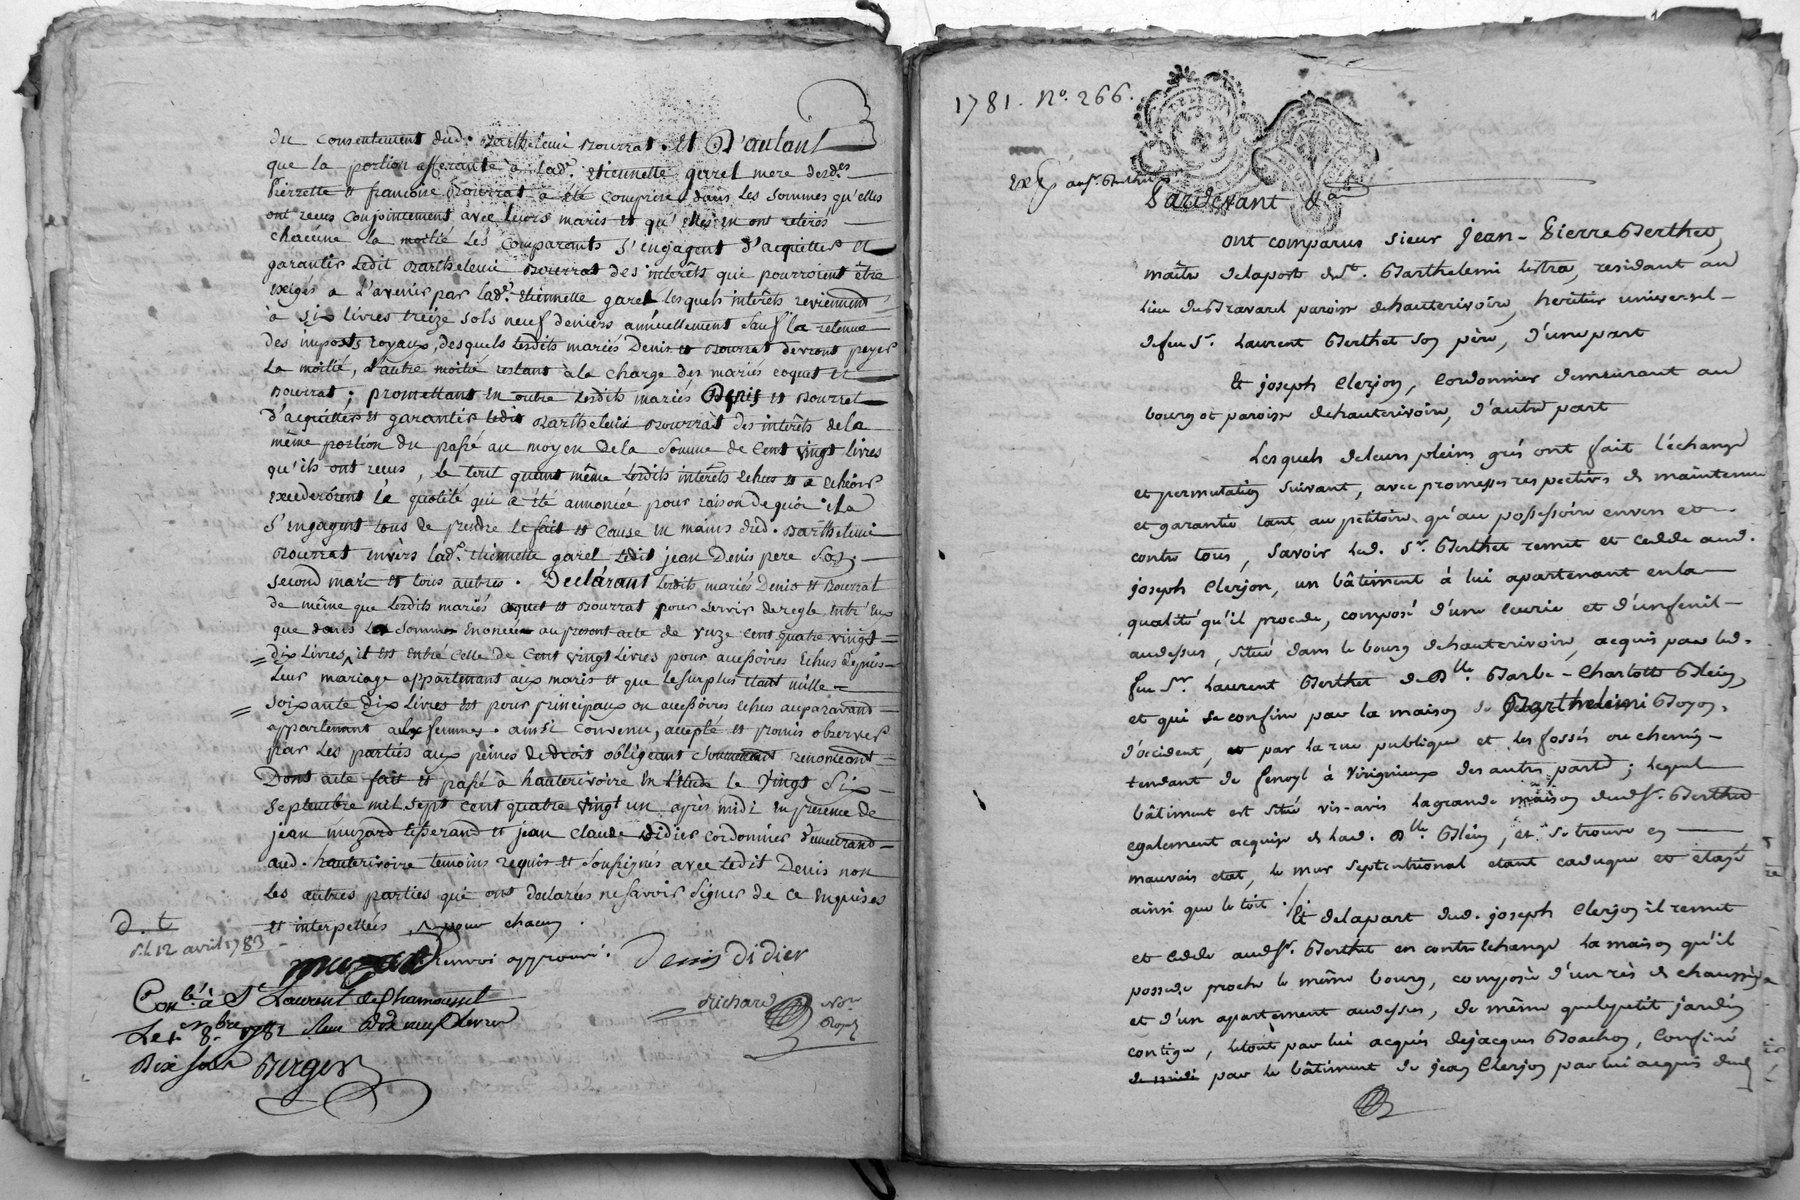 du consentement dud. Barthelemi Bourrat. Et D'autant
que la portion afferante à lad.e etiennette garel mere desd.es
Pierrette et francoise Bourrat a été comprise dans les sommes qu'elles
ont recus conjointement avec leurs maris et qu'elles en ont retirés
chacune la moitié les comparants s'engagent d'acquitter et
garantir ledit Barthelemi Bourrat des interêts qui pourroient être
exigés a l'avenir par lad.e Etiennette garel lesquels interêts reviennent
à six livres treize sols neuf deniers annuellement sauf la retenue
des imposts royaux, desquels lesdits mariés Denis et Bourrat devront payer
la moitié, l'autre moitié restant à la charge des mariés coquet et
Bourrat; promettant en outre lesdits mariés Denis et Bourrat
d'acquitter et garantir ledit Barthelemi Bourrat des interêts de la
même portion du passé au moyen de la somme de cent vingt livres
qu'ils ont recus, le tout quant même lesdits interêts echus et a echeoir
excederoient la quotité qui a été annoncée pour raison de quoi ils
s'engagent tous de prendre le fait et cause en mains dud. Barthelemi
Bourrat envers lad.e etiennette garel ledit jean Denis pere son
second mari et tous autres. Declarant lesdits mariés Denis et Bourrat
de même que lesdits mariés coquet et Bourrat pour servir de regle entr'eux
que dans la somme enoncée au present acte de onze cent quatre vingt
dix livres, il est entré celle de cent vingt livres pour accessoires echus depuis
leur mariage appartenant aux maris et que le surplus etant mille
soixante dix livres est pour principaux ou accessoires echus auparavant
appartenant aux femmes. ainsi convenu, accepté et promis observer
par les parties aux peines de droit obligeant soumettant renonceant
Dont acte fait et passé à hauterivoire en l'etude le vingt six
septembre mil sept cent quatre vingt un après midi en presence de
jean muzard tisserand et jean claude didier cordonnier demeurant
aud. hauterivoire temoins requis et soussignés avec ledit Denis non
les autres parties qui ont declarées ne savoir signer de ce enquises
et interpellées pour chacun
d. t
12 avril 1783
muzard renvoi approuvé. Denis didier
Con.lé à S.t Laurent de Chamousset
Le 8.bre 1781 Reçu dix neuf livres
Dix sols Burger
richard No.re Royal
1781. N°. 266.
Pardevant
ont comparus sieur Jean-Pierre Berthet,
maître de la poste de S.t Barthelemi lestra, residant au
lieu du Bravard paroisse de hauterivoire, heritier universel
de feu S.r Laurent Berthet son père, d'une part
Et joseph Clerjon, Cordonnier demeurant au
bourg et paroisse de hauterivoire, d'autre part
Lesquels de leurs pleins grés ont fait l'échange
et permutation suivant, avec promesses respectives de maintenue
et garantie tant au petitoire qu'au possessoire envers et
contre tous, Savoir led. S.r Berthet remet et cedde aud.
joseph Clerjon, un bâtiment à lui apartenant en la
qualité qu'il procede, composé d'une ecurie et d'un fenil
audessus, situé dans le bourg de hauterivoire, acquis par led.
feu S.r Laurent Berthet de D.lle Barbe-Charlotte Blein,
et qui se confine par la maison de Barthelemi Boyon.
d'occident, et par la rue publique et les fossés ou chemin
tendant de fenoyl à Virigneux des autres parts; lequel
bâtiment est situé vis-avis la grande maison dud S.r Berthet
egalement acquise de lad. D.lle Blein, et se trouve en
mauvais etat, le mur septentrional etant caduque et etayé
ainsi que le toit.
Et de la part dud. joseph Clerjon il remet
et cedde aud S.r Berthet en contre echange la maison qu'il
possede proche le même bourg, composée d'un rès de chaussée
et d'un apartement audessus, de même quel petit jardin
contigu, le tout par lui acquis de jacques Boachon, Confiné
de midi par le bâtiment de jean Clerjon par lui acquis dud